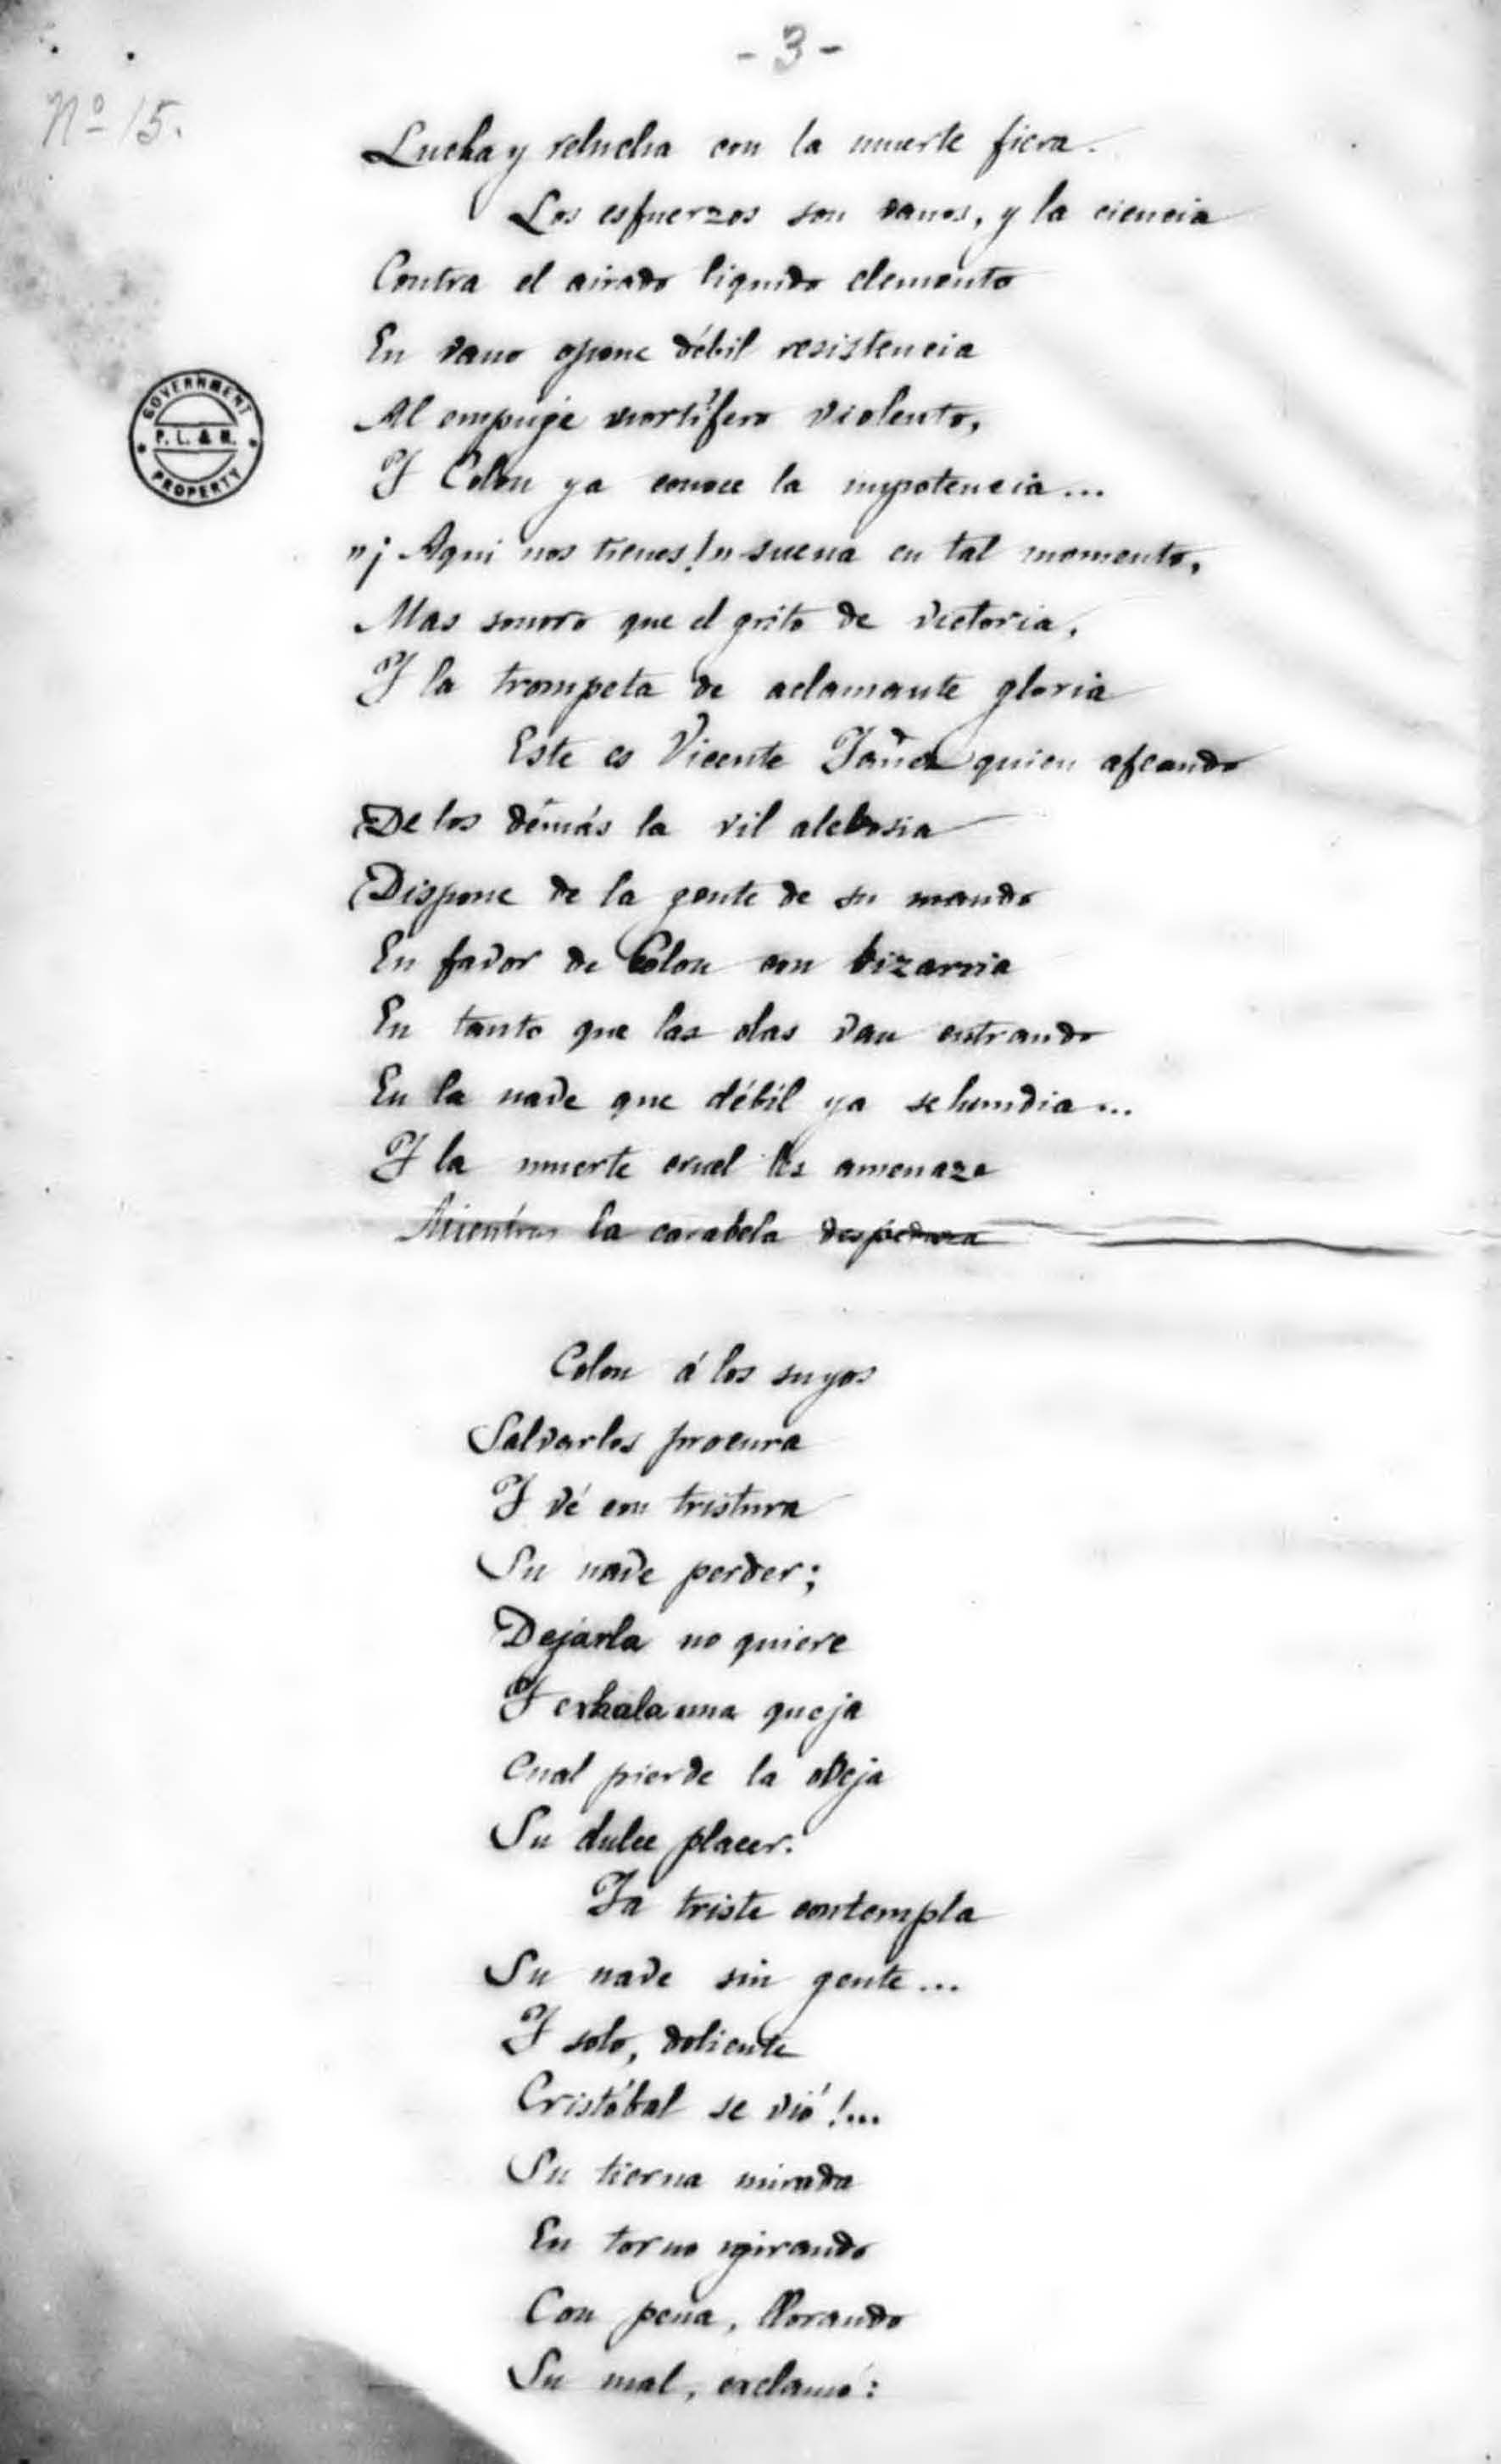 - 3 -
Nº 15.
Lucha y relucha con la muerte fiera.
Los esfuerzos son vanos, y la ciencia
Contra el airado liquido elemento
En vano opone débil resistencia
GOVERNMENT
P. L. & M.
PROPERTY
Al empuje mortífero violento,
Y Colon ya conoce la impotencia...
"¡Aqui nos tienes!" suena en tal momento,
Mas sonoro que el grito de victoria,
Y la trompeta de aclamante gloria
Este es Vicente Yañez quien afeando
De los demás la vil alebosia
Dispone de la gente de su mando
En favor de Colon con bizarria
En tanto que las olas van entrando
En la nave que débil ya se hundia...
Y la muerte cruel los amenaza
Mientras la carabela despedaza
Colon á los suyos
Salvarlos procura
Y vé con tristura
Su nave perder;
Dejarla no quiere
Y exhala una queja
Cual pierde la oveja
Su dulce placer.
Ya triste contempla
Su nave sin gente...
Y solo, doliente
Cristóbal se vió!...
Su tierna mirada
En torno girando
Con pena, llorando
Su mal, exclamó: